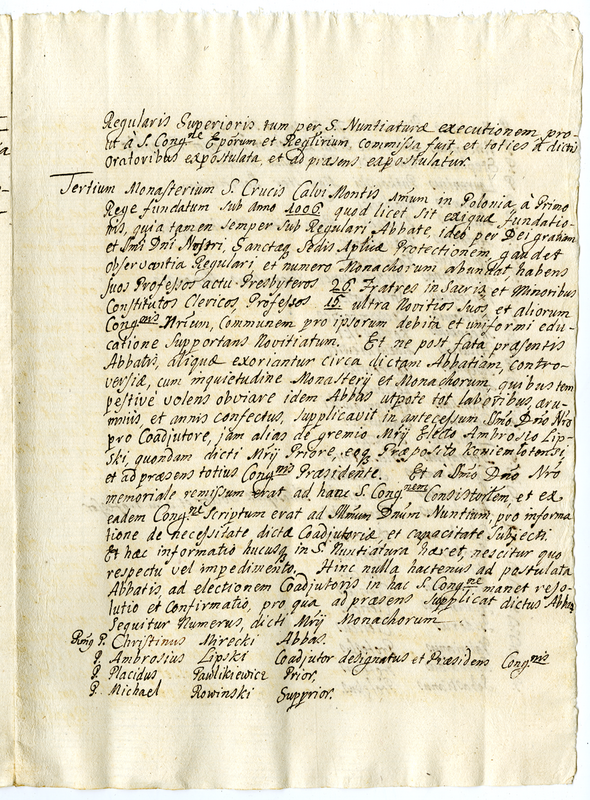 Regularis Superioris tum per S. Nuntiaturæ executionem pro-
ut à S. Congne Epōrum et Reglirium, commissa fuit et toties à dictis
Oratoribus expostulata, et ad præsens expostulatur.
Tertium Monasterium S. Crucis Calvi Montis, in Polonia à Primo
Rege fundatum sub anno 1006 quod licet sit exiguæ fundatio-
nis, quia tamen semper sub Regulari Abbate, ideo per Dei gratiam
et Smi Dni Nostri, Sanctæq Sedis Aplicæ Protectionem gaudet
observantia Regulari, et numero Monachorum abundat habens
suos Professos actu Presbyteros 26. Fratres in Sacris et Minoribus
Constitutos Clericos Professos 15. ultra Novitios suos, et aliorum
Congnis Mrium, Communem pro ipsorum debita et uniformi edu-
catione supportans Novitiatum. Et ne post fata præsentis
Abbatis, aliquæ exoriantur circa dictam Abbatiam, contro-
versiæ, cum inquietudine Monasterij et Monachorum, quibus tem
pestivè volens obviare idem Abbas utpote tot laboribus, æru-
mnis et annis confectus, supplicavit in antecessum Smo Dno Nro
pro Coadjutore, jam alias de gremio Mrij Electo Ambrosio Lip-
ski, quondam dicti Mrij Priore, eoq Præposito Koniemlotensi,
et ad præsens totius Congnis Præsidente. Et à Smo Dno Nro
memoriale remissum erat ad hanc S. Congnem Consistorlem, et ex
eadem Congne Scriptum erat ad Illmum Dnum Nuntium, pro informa
tione de necessitate dictæ Coadjutoriæ, et capacitate Subjecti
Et hæc informatio hucusq in S. Nuntiatura hæret, nescitur quo
respectu vel impedimento. Hinc nulla hactenus ad postulata
Abbatis, ad electionem Coadjutoris in hac S. Congne manet reso-
lutio et Confirmatio, pro qua ad præsens supplicat dictus Abbas
Sequitur Numerus, dicti Mrij Monachorum
P. Christinus Mirecki Abbas.
P. Ambrosius Lipski Coadjutor designatus et Præsidens Congnis
P. Placidus Paulikiewicz Prior.
P. Michael Rowinski Supprior.